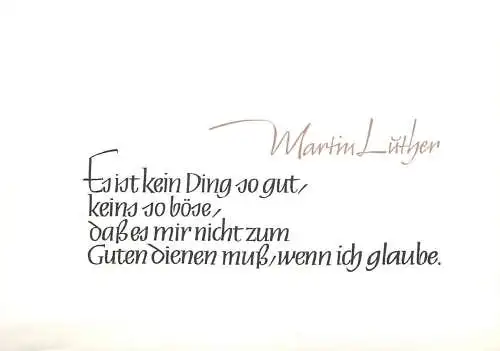 Martin Luther
Es ist kein Ding so gut,
keins so böse,
daß es mir nicht zum
Guten dienen muß, wenn ich glaube.